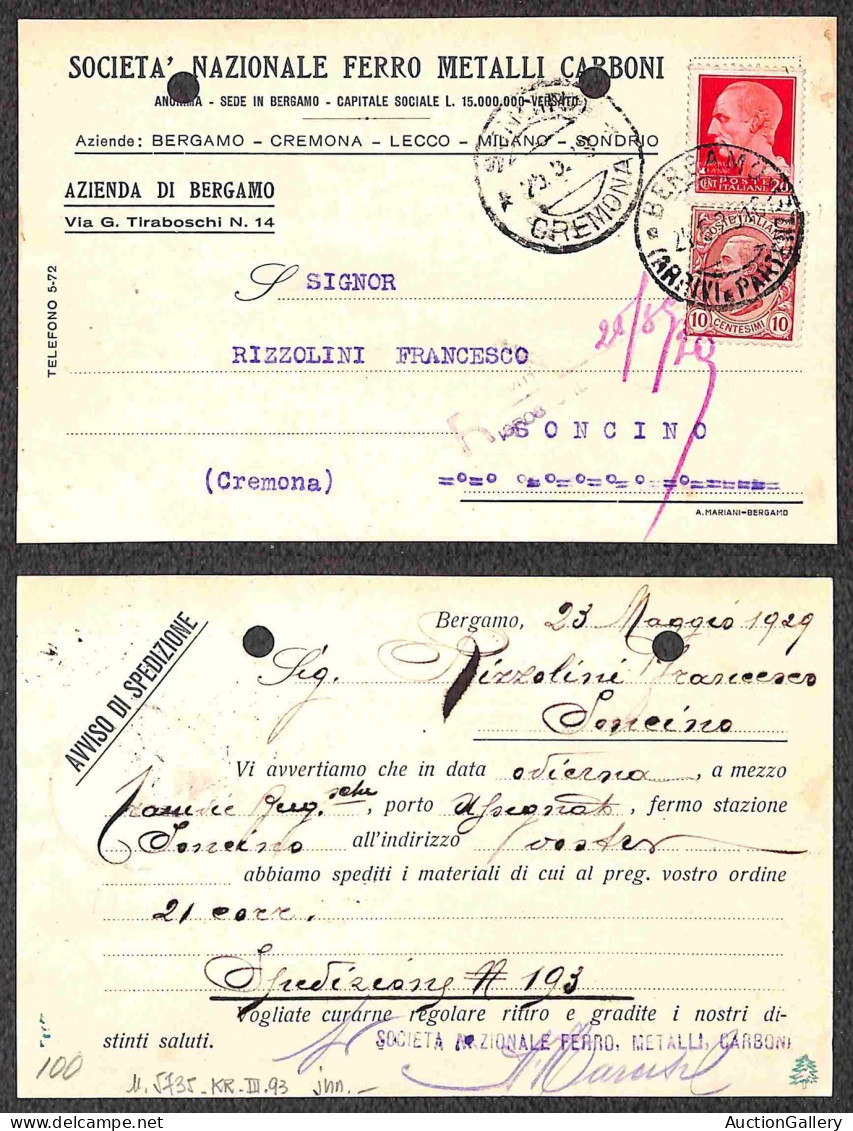 SOCIETA' NAZIONALE FERRO METALLI CARBONI
ANONIMA - SEDE IN BERGAMO - CAPITALE SOCIALE L. 15.000.000 VERSATO
Aziende: BERGAMO - CREMONA - LECCO - MILANO - SONDRIO
AZIENDA DI BERGAMO
Via G. Tiraboschi N. 14
TELEFONO 5-72
SIGNOR
RIZZOLINI FRANCESCO
SONCINO
(Cremona)
A. MARIANI-BERGAMO
CREMONA
POSTE
ITALIANE
CENT
BERGAMO
ARRIVI E PARTENZE
10 CENTESIMI 10
AVVISO DI SPEDIZIONE
Bergamo, 23 Maggio 1929
Sig. Rizzolini Francesco
Soncino
Vi avvertiamo che in data odierna, a mezzo
, porto Assegnato, fermo stazione
Soncino all'indirizzo vostro
abbiamo spediti i materiali di cui al preg. vostro ordine
21 corr.
Spedizione N 193
Vogliate curarne regolare ritiro e gradite i nostri di-
stinti saluti.
SOCIETÀ NAZIONALE FERRO, METALLI, CARBONI
100
AuctionGallery